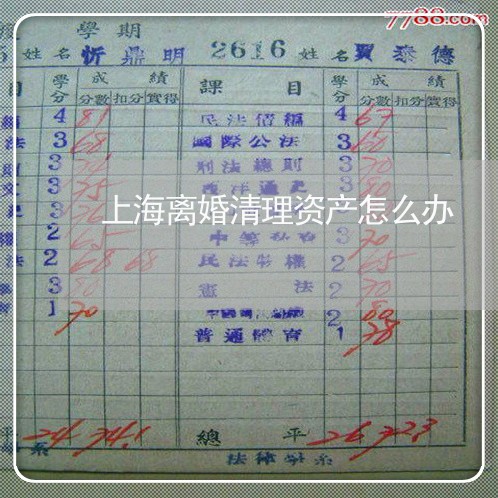 7788.com
學期
5 姓名 忻鼎明 2616 姓名 賈泰德
目 學分 成績 分數 扣分 實得 課目 學分 成績 分數 扣分 實得
4 81 民法債編 4 67
法 3 68 國際公法 3 60
3 刑法總則 3 70
3 75 西洋通史 3 80
3
上海离婚清理资产怎么办
2 65 3 70
法 2 68 68 民法物權 2 65
3 80 憲法 2 70
1 70 2 80
普通體育 1 78
平 24 74.1 總平 26 72.3
系 法律學系